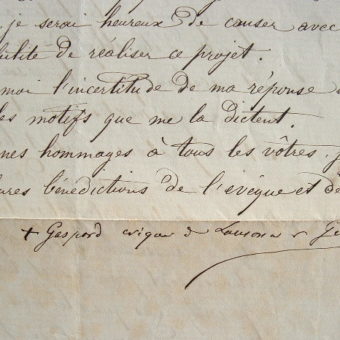 je serai heureux de causer avec
bilité de réaliser ce projet.
moi l'incertitude de ma réponse
les motifs que me la dictent.
mes hommages à tous les vôtres. j
ures bénédictions de l'évêque et de
+ Gaspard évêque de Lausanne & Ge